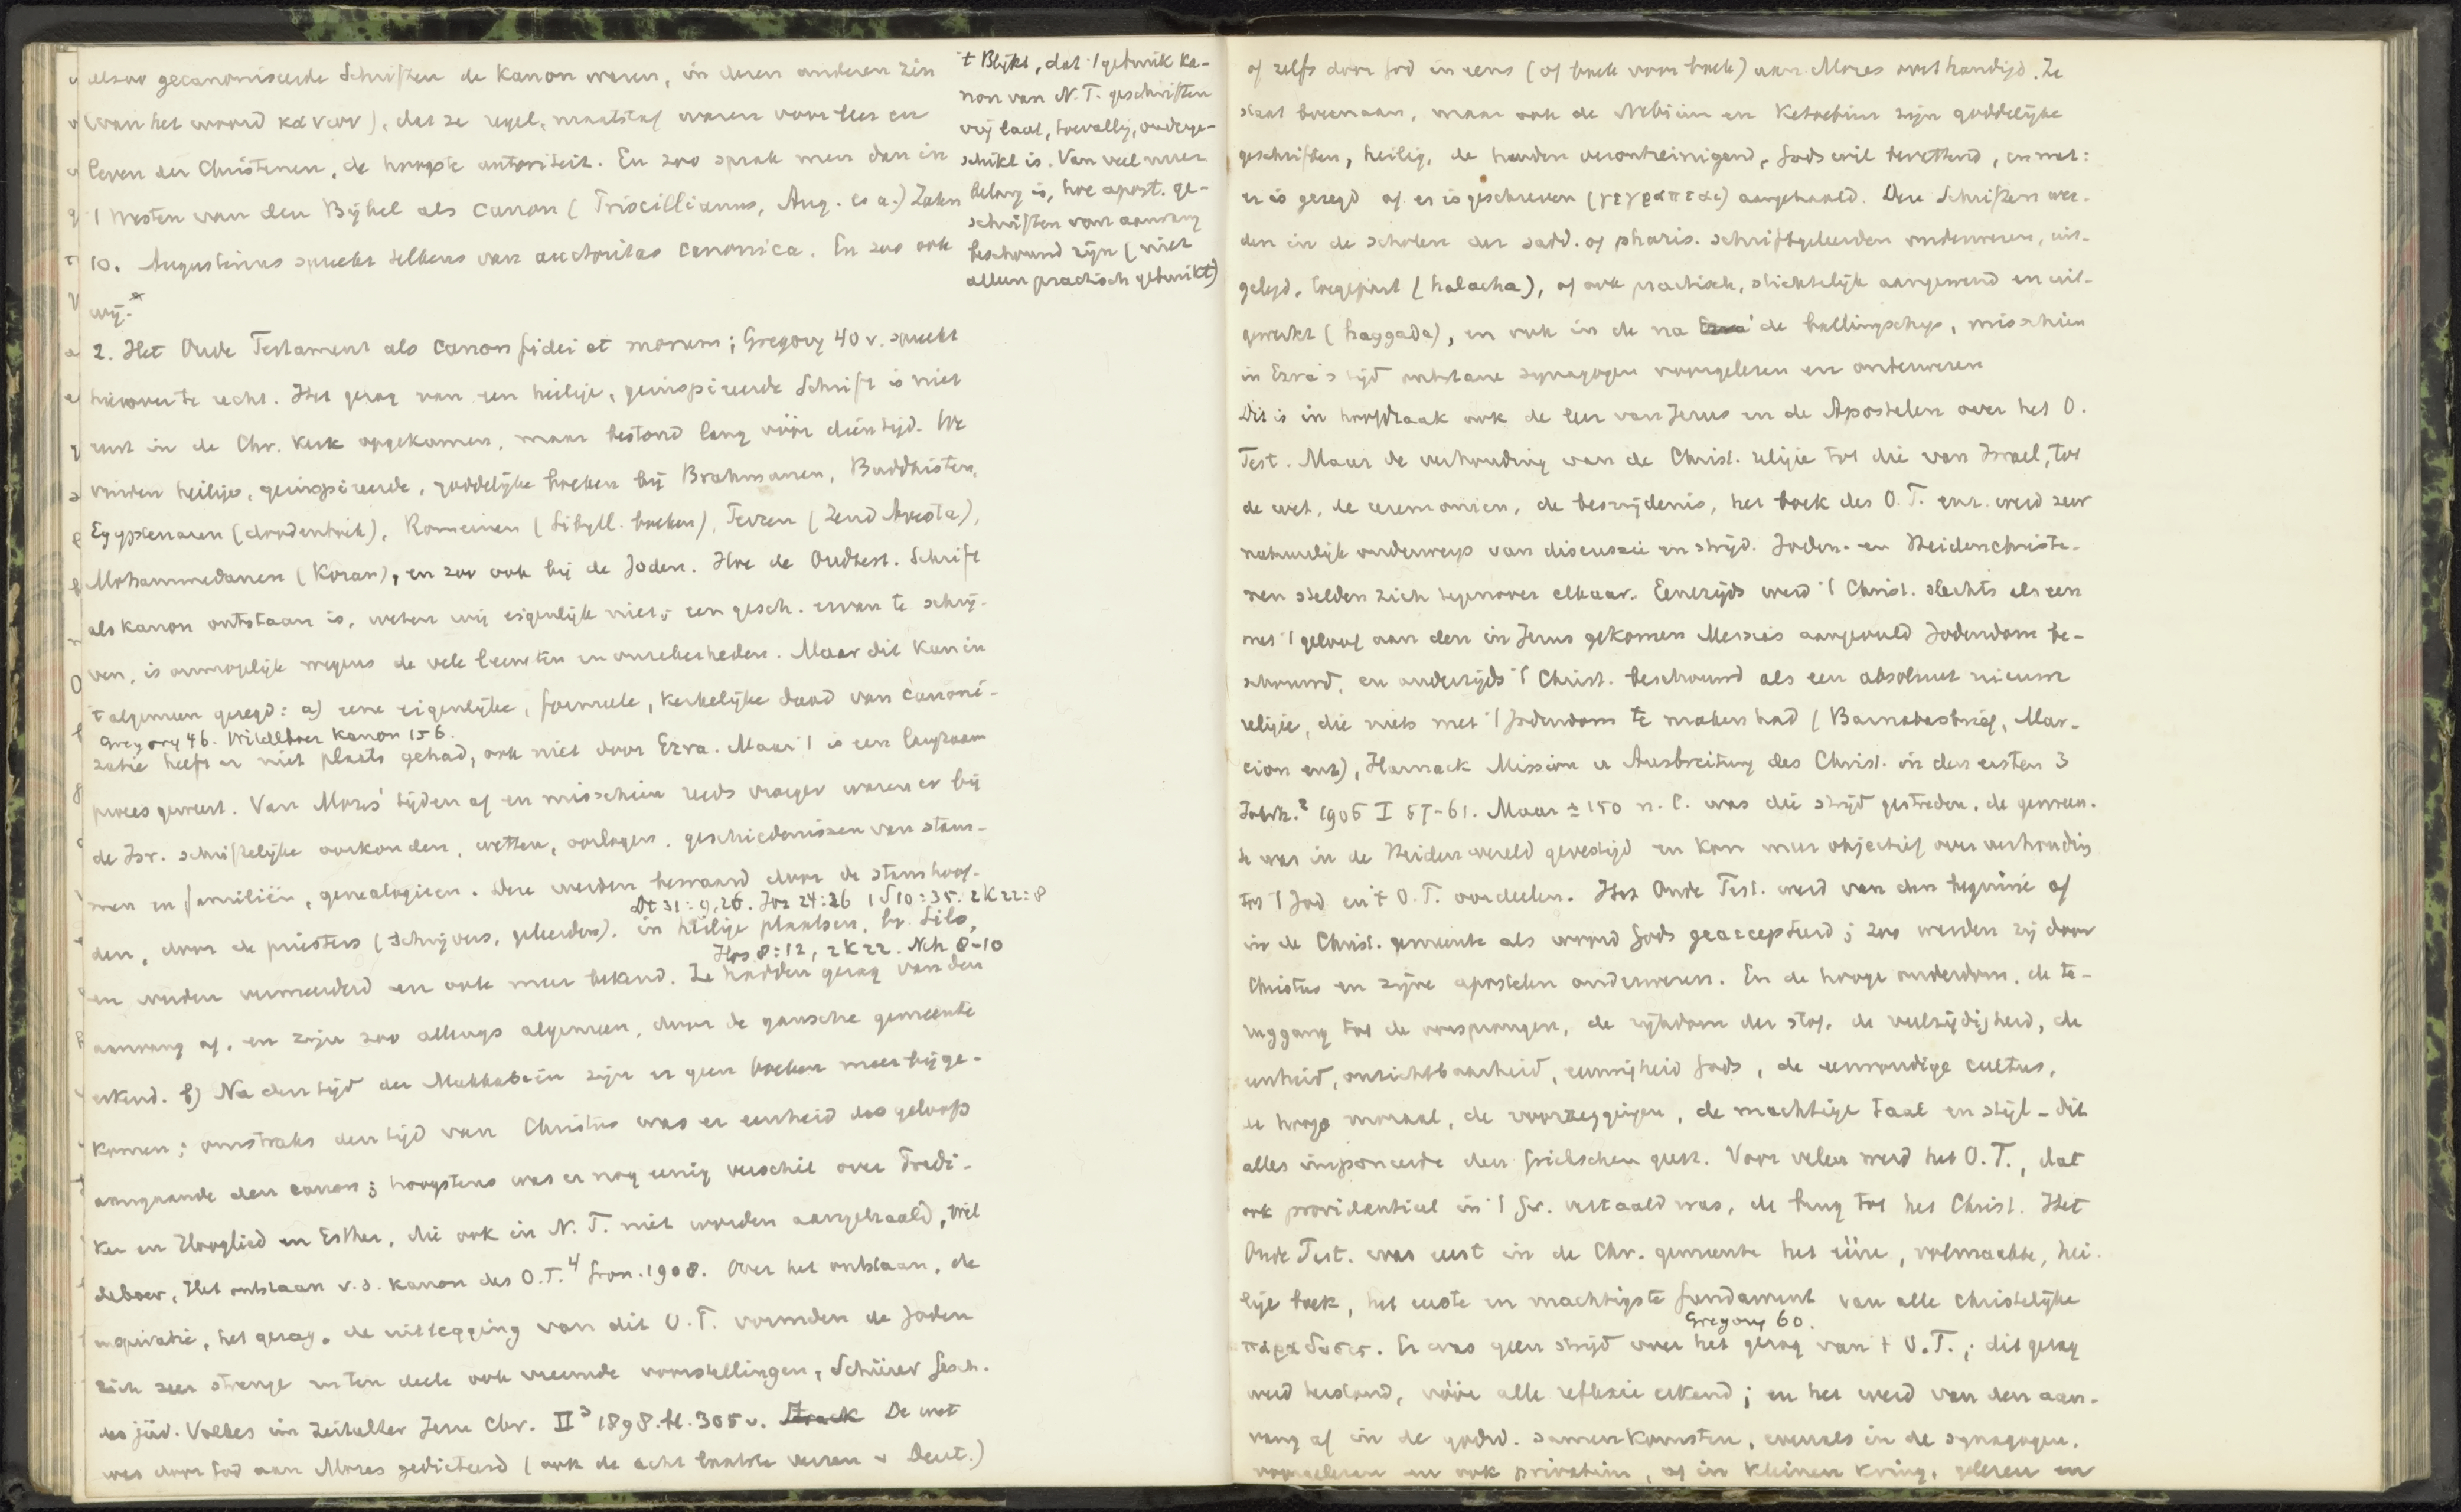 alzoo gecanoniseerde Schriften de Kanon waren, in deren anderen zin
(van het woord κανων), dat ze regel, maatstaf waren voor leer en
leven der Christenen, de hoogste autoriteit. En zoo sprak men dan in
't Westen van den Bijbel als Canon (Priscillianus, Aug. e. a.) Zahn
10. Augustinus spreekt telkens van auctoritas canonica. En zoo ook
wij.
't Blijkt, dat 't gebruik Ka-
non van N. T. geschriften
vrij laat, toevallig, onderge-
schikt is. Van veel meer
belang is, hoe apost. ge-
schriften van aanvang
beschouwd zijn (niet
alleen practisch gebruikt)
2. Het Oude Testament als Canon fidei et morum; Gregory 40 v. spreekt
hierover te recht. Het gezag van een heilige, geinspireerde Schrift is niet
eerst in de Chr. Kerk opgekomen, maar bestond lang vóór dien tijd. We
vinden heilige, geinspireerde, goddelijke boeken bij Brahmanen, Buddhisten,
Egyptenaren (doodenboek), Romeinen (Sibyll. boeken), Perzen (Zend Avesta),
Mohammedanen (Koran), en zoo ook bij de Joden. Hoe de Oudtest. Schrift
als kanon ontstaan is, weten wij eigenlijk niet; een gesch. ervan te schrij-
ven, is onmogelijk wegens de vele leemten en onzekerheden. Maar dit kan in
't algemeen gezegd: a) eene eigenlijke, formeele, kerkelijke daad van canoni-
Gregory 46. Wildeboer Kanon 156.
zatie heeft er niet plaats gehad, ook niet door Ezra. Maar 't is een langzaam
proces geweest. Van Mozes' tijden af en misschien reeds vroeger waren er bij
de Isr. schriftelijke oorkonden, wetten, oorlogen, geschiedenissen van stam-
men en familiën, genealogieen. Deze werden bewaard door de stamhoof-
Dt 31:9,26. Joz 24:26 1 S 10:35. 2 K 22:8
den, door de priesters (schrijvers, geleerden). in heilige plaatsen, bv. Silo,
Hos 8:12, 2 K 22. Neh 8-10
en werden vermeerderd en ook meer bekend. Ze hadden gezag van den
aanvang af, en zijn zoo allengs algemeen, door de gansche gemeente
erkend. b) Na den tijd der Makkabeën zijn er geen boeken meer bijge-
komen; omstreeks den tijd van Christus was er eenheid des geloofs
aangaande den canon; hoogstens was er nog eenig verschil over Predi-
ker en Hooglied en Esther, die ook in N. T. niet worden aangehaald, Wil
deboer, Het ontstaan v. d. kanon des O. T.⁴ Gron. 1908. Over het ontstaan, de
inspiratie, het gezag, de uitlegging van dit O. T. vormden de Joden
zich zeer strenge en ten deele ook vreemde voorstellingen, Schürer Gesch.
des jüd. Volkes im Zeitalter Jesu Chr. II³ 1898. bl. 305 v. Strack De wet
was door God aan Mozes gedicteerd (ook de acht laatste verzen v Deut.)
of zelfs door God in eens (of boek voor boek) aan Mozes overhandigd. Ze
staat bovenaan, maar ook de Nebiim en Ketoebim zijn goddelijke
geschriften, heilig, de handen verontreinigend, Gods wil bevattend, en met:
er is gezegd of er is geschreven (γεγραπται) aangehaald. Deze Schriften wer-
den in de scholen der sadd. of pharis. schriftgeleerden onderwezen, uit-
gelegd, toegepast (halacha), of ook practisch, stichtelijk aangewend en uit-
gewerkt (haggada), en ook in de na Ezra de ballingschap, misschien
in Ezra's tijd ontstane synagogen voorgelezen en onderwezen
Dit is in hoofdzaak ook de leer van Jezus en de Apostelen over het O.
Test. Maar de verhouding van de Christ. religie tot die van Israel, tot
de wet, de ceremonien, de besnijdenis, het boek des O. T. enz. werd zeer
natuurlijk onderwerp van discussie en strijd. Joden- en Heidenchriste-
nen stelden zich tegenover elkaar. Eenerzijds werd 't Christ. slechts als een
met 't geloof aan den in Jezus gekomen Messias aangevuld Jodendom be-
schouwd, en anderzijds 't Christ. beschouwd als een absoluut nieuwe
religie, die niets met 't Jodendom te maken had (Barnabasbrief, Mar-
cion enz), Harnack Mission u Ausbreitung des Christ. in den ersten 3
Jahrh.² 1906 I 57-61. Maar ± 150 n. C. was die strijd gestreden, de gemeen-
te was in de Heidenwereld gevestigd en kon meer objectief over verhouding
tot 't Jod en 't O. T. oordeelen. Het Oude Test. werd van den beginne af
in de Christ. gemeente als woord Gods geaccepteerd; zoo werden zij door
Christus en zijne apostelen onderwezen. En de hooge ouderdom, de te-
ruggang tot de oorsprongen, de rijkdom der stof, de veelzijdigheid, de
eenheid, onzichtbaarheid, eeuwigheid Gods, de eenvoudige cultus,
de hooge moraal, de voorzeggingen, de machtige taal en stijl - dit
alles imponeerde den Grieckschen geest. Voor velen werd het O. T., dat
ook providentieel in 't Gr. vertaald was, de brug tot het Christ. Het
Oude Test. was eerst in de Chr. gemeente het ééne, volmaakte, hei-
lige boek, het eerste en machtigste fundament van alle christelijke
Gregory 60.
παραδοσις. Er was geen strijd over het gezag van 't O. T.; dit gezag
werd bestond, vóór alle reflexie erkend; en het werd van den aan-
vang af in de godsd. samenkomsten, evenals in de synagogen,
voorgelezen en ook privatim, of in kleinen kring, gelezen en